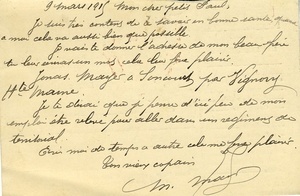 9 mars 1915 Mon cher petit Paul,
Je suis très content de te savoir en bonne santé, quant
à moi cela va aussi bien que possible
Je vais te donner l'adresse de mon beau-père
tu leur écriras un mot, cela leur fera plaisir.
Jonas Mayer à Soncourt par Vignory
Hte Marne
Je te dirai que je pense d'ici peu de mon
emploi être relevé pour aller dans un régiment de
territorial.
Écris moi de temps à autre cela me fera plaisir.
Ton vieux copain
M.